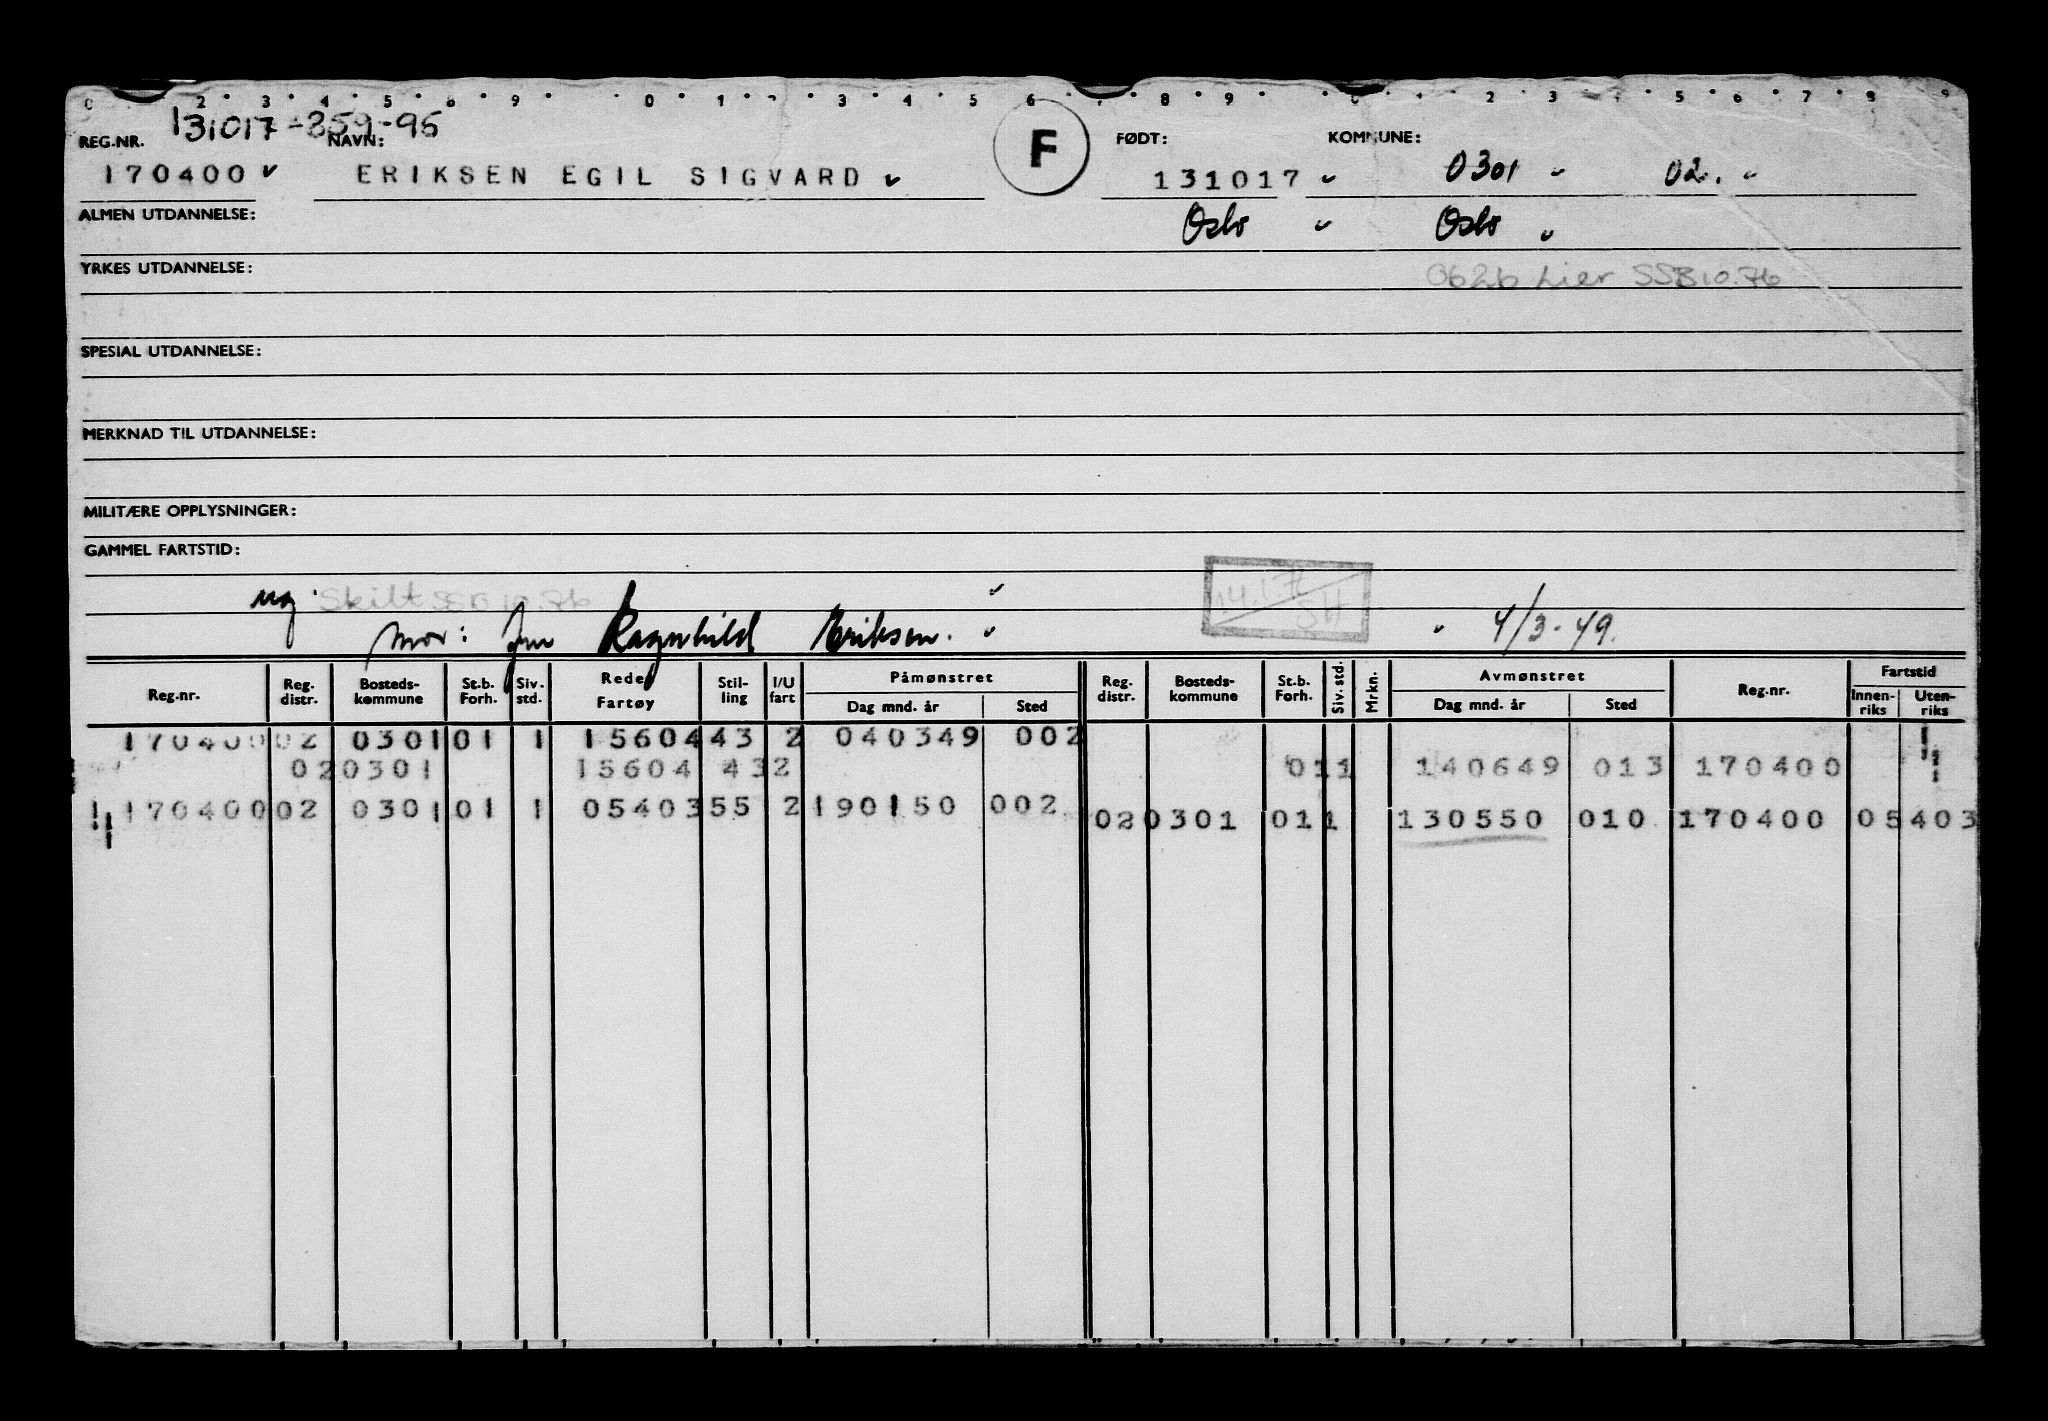 131017-259-95
REG.NR. NAVN: F FØDT: KOMMUNE:
170400 ERIKSEN EGIL SIGVARD 131017 0301 02.
ALMEN UTDANNELSE: Oslo Oslo
YRKES UTDANNELSE: 0626 Lier SSB 10.76
SPESIAL UTDANNELSE:
MERKNAD TIL UTDANNELSE:
MILITÆRE OPPLYSNINGER:
GAMMEL FARTSTID:
ug. Skilt SSB 10.76
mor: Ragnhild Eriksen. 4/3-49.
Reg.nr. Reg. distr. Bosteds-kommune St.b. Forh. Siv. std. Rede Fartøy Stil-ling I/U fart Påmønstret Dag mnd. år Sted Reg. distr. Bosteds-kommune St.b. Forh. Siv. std. Mrkn. Avmønstret Dag mnd. år Sted Reg.nr. Fartstid Innen-riks Uten-riks
170400 02 0301 01 1 15604 43 2 040349 002
02 0301 15604 43 2 01 1 140649 013 170400
170400 02 0301 01 1 05403 55 2 190150 002 02 0301 01 1 130550 010 170400 05403